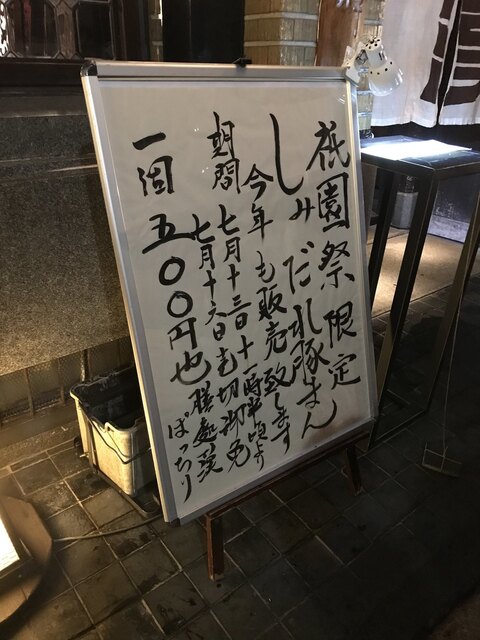 祇園祭限定
しみだれ豚まん
今年も販売致します
期間 七月十三日十一時半頃より
七月十六日売切御免
一個 五〇〇円也
膳處漢ぽっちり